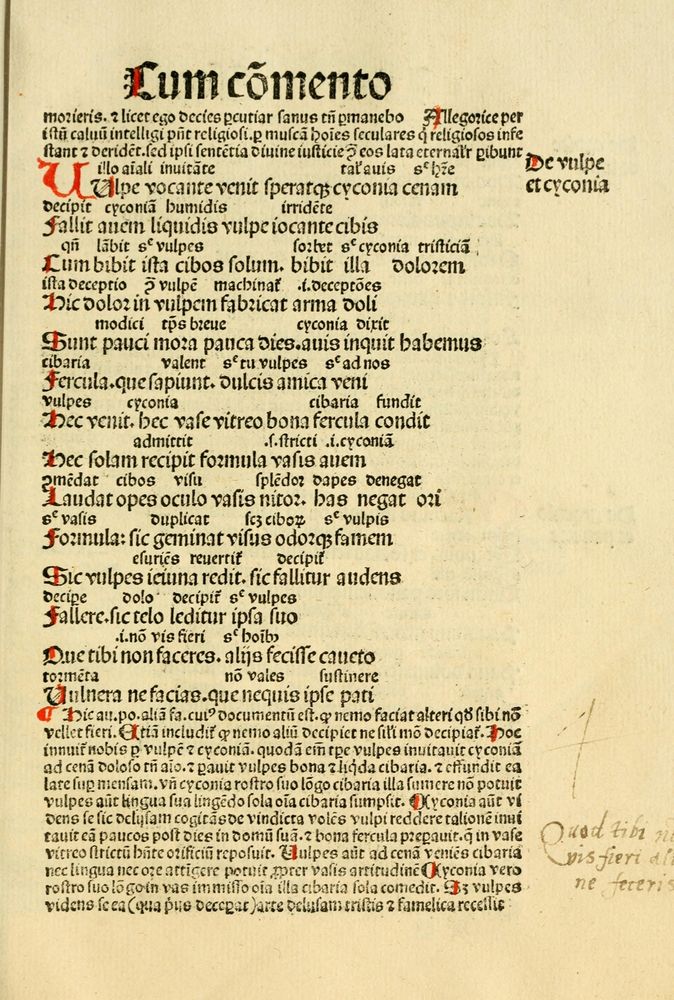 Cum cōmento
morieris. ⁊ licet ego decies ꝑcutiar sanus tn̄ ꝑmanebo Allegorice per
istū caluū intelligi pn̄t religiosi. ꝑ muscam hoīes seculares q̄ religiosos infe
stant ⁊ derident. sed ipsi sententia diuine iusticie ꝓ eos lata eternalr̄ ꝑibunt
De vulpe
et cyconia
illo aīali inuitāte tal̓ auis sᶜ hr̄e
Vulpe vocante venit speratqꝫ cyconia cenam
decipit cyconiam humidis irridēte
Fallit auem liquidis vulpe iocante cibis
qn̄ lābit sᶜ vulpes sorbet sᶜ cyconia tristiciā
Cum bibit ista cibos solum. bibit illa dolorem
ista deceptio ꝓ vulpē machinat̄ .i. deceptōes
Hic dolor in vulpem fabricat arma doli
modici tp̄s breue cyconia dixit
Sunt pauci mora pauca dies. auis inquit habemus
cibaria valent sᶜ tu vulpes sᶜ ad nos
Fercula. que sapiunt. dulcis amica veni
vulpes cyconia cibaria fundit
Hec venit. hec vase vitreo bona fercula condit
admittit .s. stricti .i. cyconiā
Hec solam recipit formula vasis auem
ꝯmēdat cibos visu splēdor dapes denegat
Laudat opes oculo vasis nitor. has negat ori
sᶜ vasis duplicat scꝫ ciboꝝ sᶜ vulpis
Formula: sic geminat visus odorqꝫ famem
esuriēs reuertit̄ decipit̄
Sic vulpes ieiuna redit. sic fallitur audens
decipe dolo decipit̄ sᶜ vulpes
Fallere. sic telo leditur ipsa suo
.i. nō vis fieri sᶜ hoībꝫ
Que tibi non faceres. alijs fecisse caueto
tormēta nō vales sustinere
Vulnera ne facias. que nequis ipse pati
¶ Hic au. po. aliā fa. cuiꝰ documentū est. ꝙ nemo faciat alteri qď sibi nō
vellet fieri. Etiā includit̄ ꝙ nemo aliū decipiet ne sil̓i mō decipiat̄. Hoc
innuit nobis ꝑ vulpē ⁊ cyconiā. quodā em̄ tp̄e vulpes inuitauit cyconiā
ad cenā doloso tn̄ aīo. ⁊ ꝑauit vulpes bona ⁊ liqida cibaria. ⁊ effundit ea
late suꝑ mensam. vn̄ cyconia rostro suo lōgo cibaria illa sumere nō potuit
vulpes aūt lingua sua lingēdo sola oīa cibaria sumpsit. Cyconia aūt vi
dens se sic delusam cogitās de vindicta volēs vulpi reddere talionē inui
tauit eā paucos post dies in domū suā. ⁊ bona fercula preꝑauit. q̄ in vase
vitreo strictū hn̄te orificiū reposuit. Vulpes aūt ad cenā veniēs cibaria
nec lingua nec ore attīgere potuit ꝓpter vasis artitudinē Cyconia vero
rostro suo lōgo in vas immisso oīa illa cibaria sola comedit. Sꝫ vulpes
videns se ea (qua pͥus deceꝑat) arte delusam tristis ⁊ famelica recessit
Quod tibi
vis fieri
ne feceris